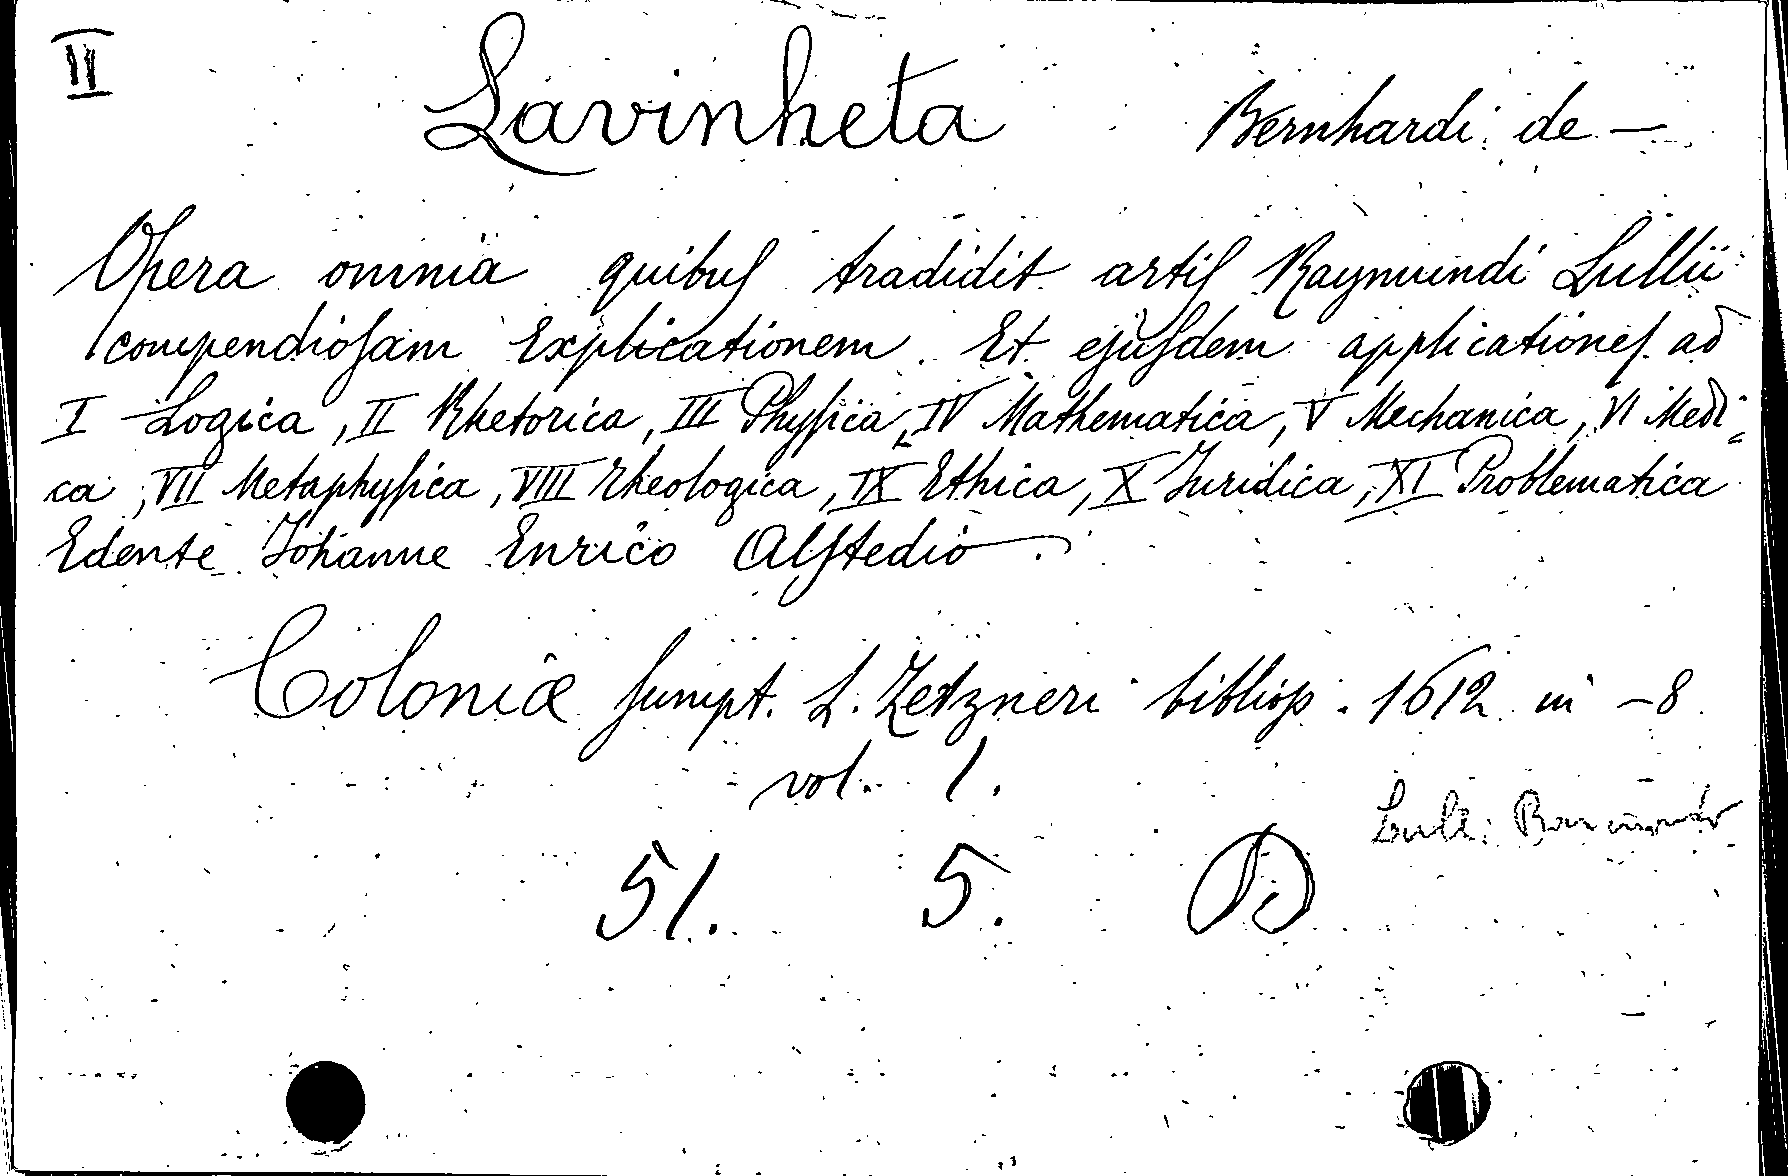 II
Lavinheta Bernhardi de —
Opera omnia quibuſ tradidit artiſ Raymundi Lullii
compendioſam Explicationem. Et ejuſdem applicationeſ ad
I Logica, II Rhetorica, III Phyſica, IV Mathematica, V Mechanica, VI Medi=
ca, VII Metaphyſica, VIII Theologica, IX Ethica, X Juridica, XI Problematica
Edente Johanne Enrico Alſtedio.
Coloniæ ſumpt. L. Zetzneri bibliop. 1612 in -8
vol. 1.
Lull: Raimondo
51. 5.